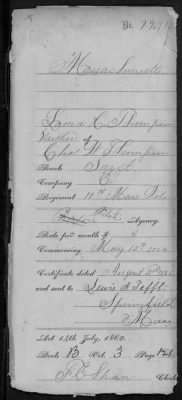 No. 1991
Massachusetts
Laura C. Thompson
Mother of
Chas W. Thompson
Rank Sergt
Company E
Regiment 10th Mass Vols
Boston Agency.
Rate per month 8
Commencing May 12th 1864
Certificate dated August 3d
and sent to Lewis A. Tifft
Springfield
Mass
Act 14th July, 1862.
Book B Vol. 3 Page 121
Shaw Clerk